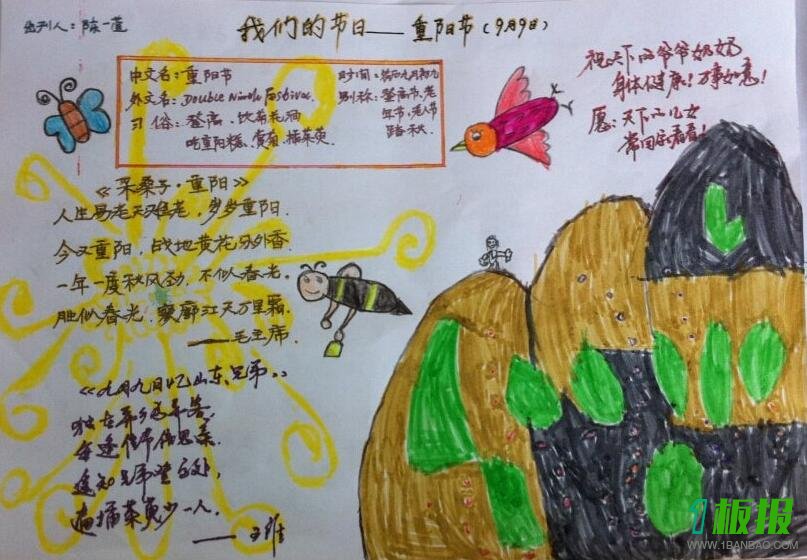 出刊人：陈一萱
我们的节日——重阳节（9月9日）
中文名：重阳节
外文名：Double Ninth Festival
习俗：登高、饮菊花酒
吃重阳糕、赏菊、插茱萸
时间：农历九月初九
别称：登高节、老
年节、老人节
踏秋
祝天下的爷爷奶奶
身体健康！万事如意！
愿：天下的儿女
常回家看看！
《采桑子·重阳》
人生易老天难老，岁岁重阳.
今又重阳，战地黄花分外香.
一年一度秋风劲，不似春光。
胜似春光，寥廓江天万里霜.
——毛主席.
《九月九日忆山东兄弟。》
独在异乡为异客，
每逢佳节倍思亲.
遥知兄弟登高处，
遍插茱萸少一人.
——王维
1板报
WWW.1BANBAO.COM